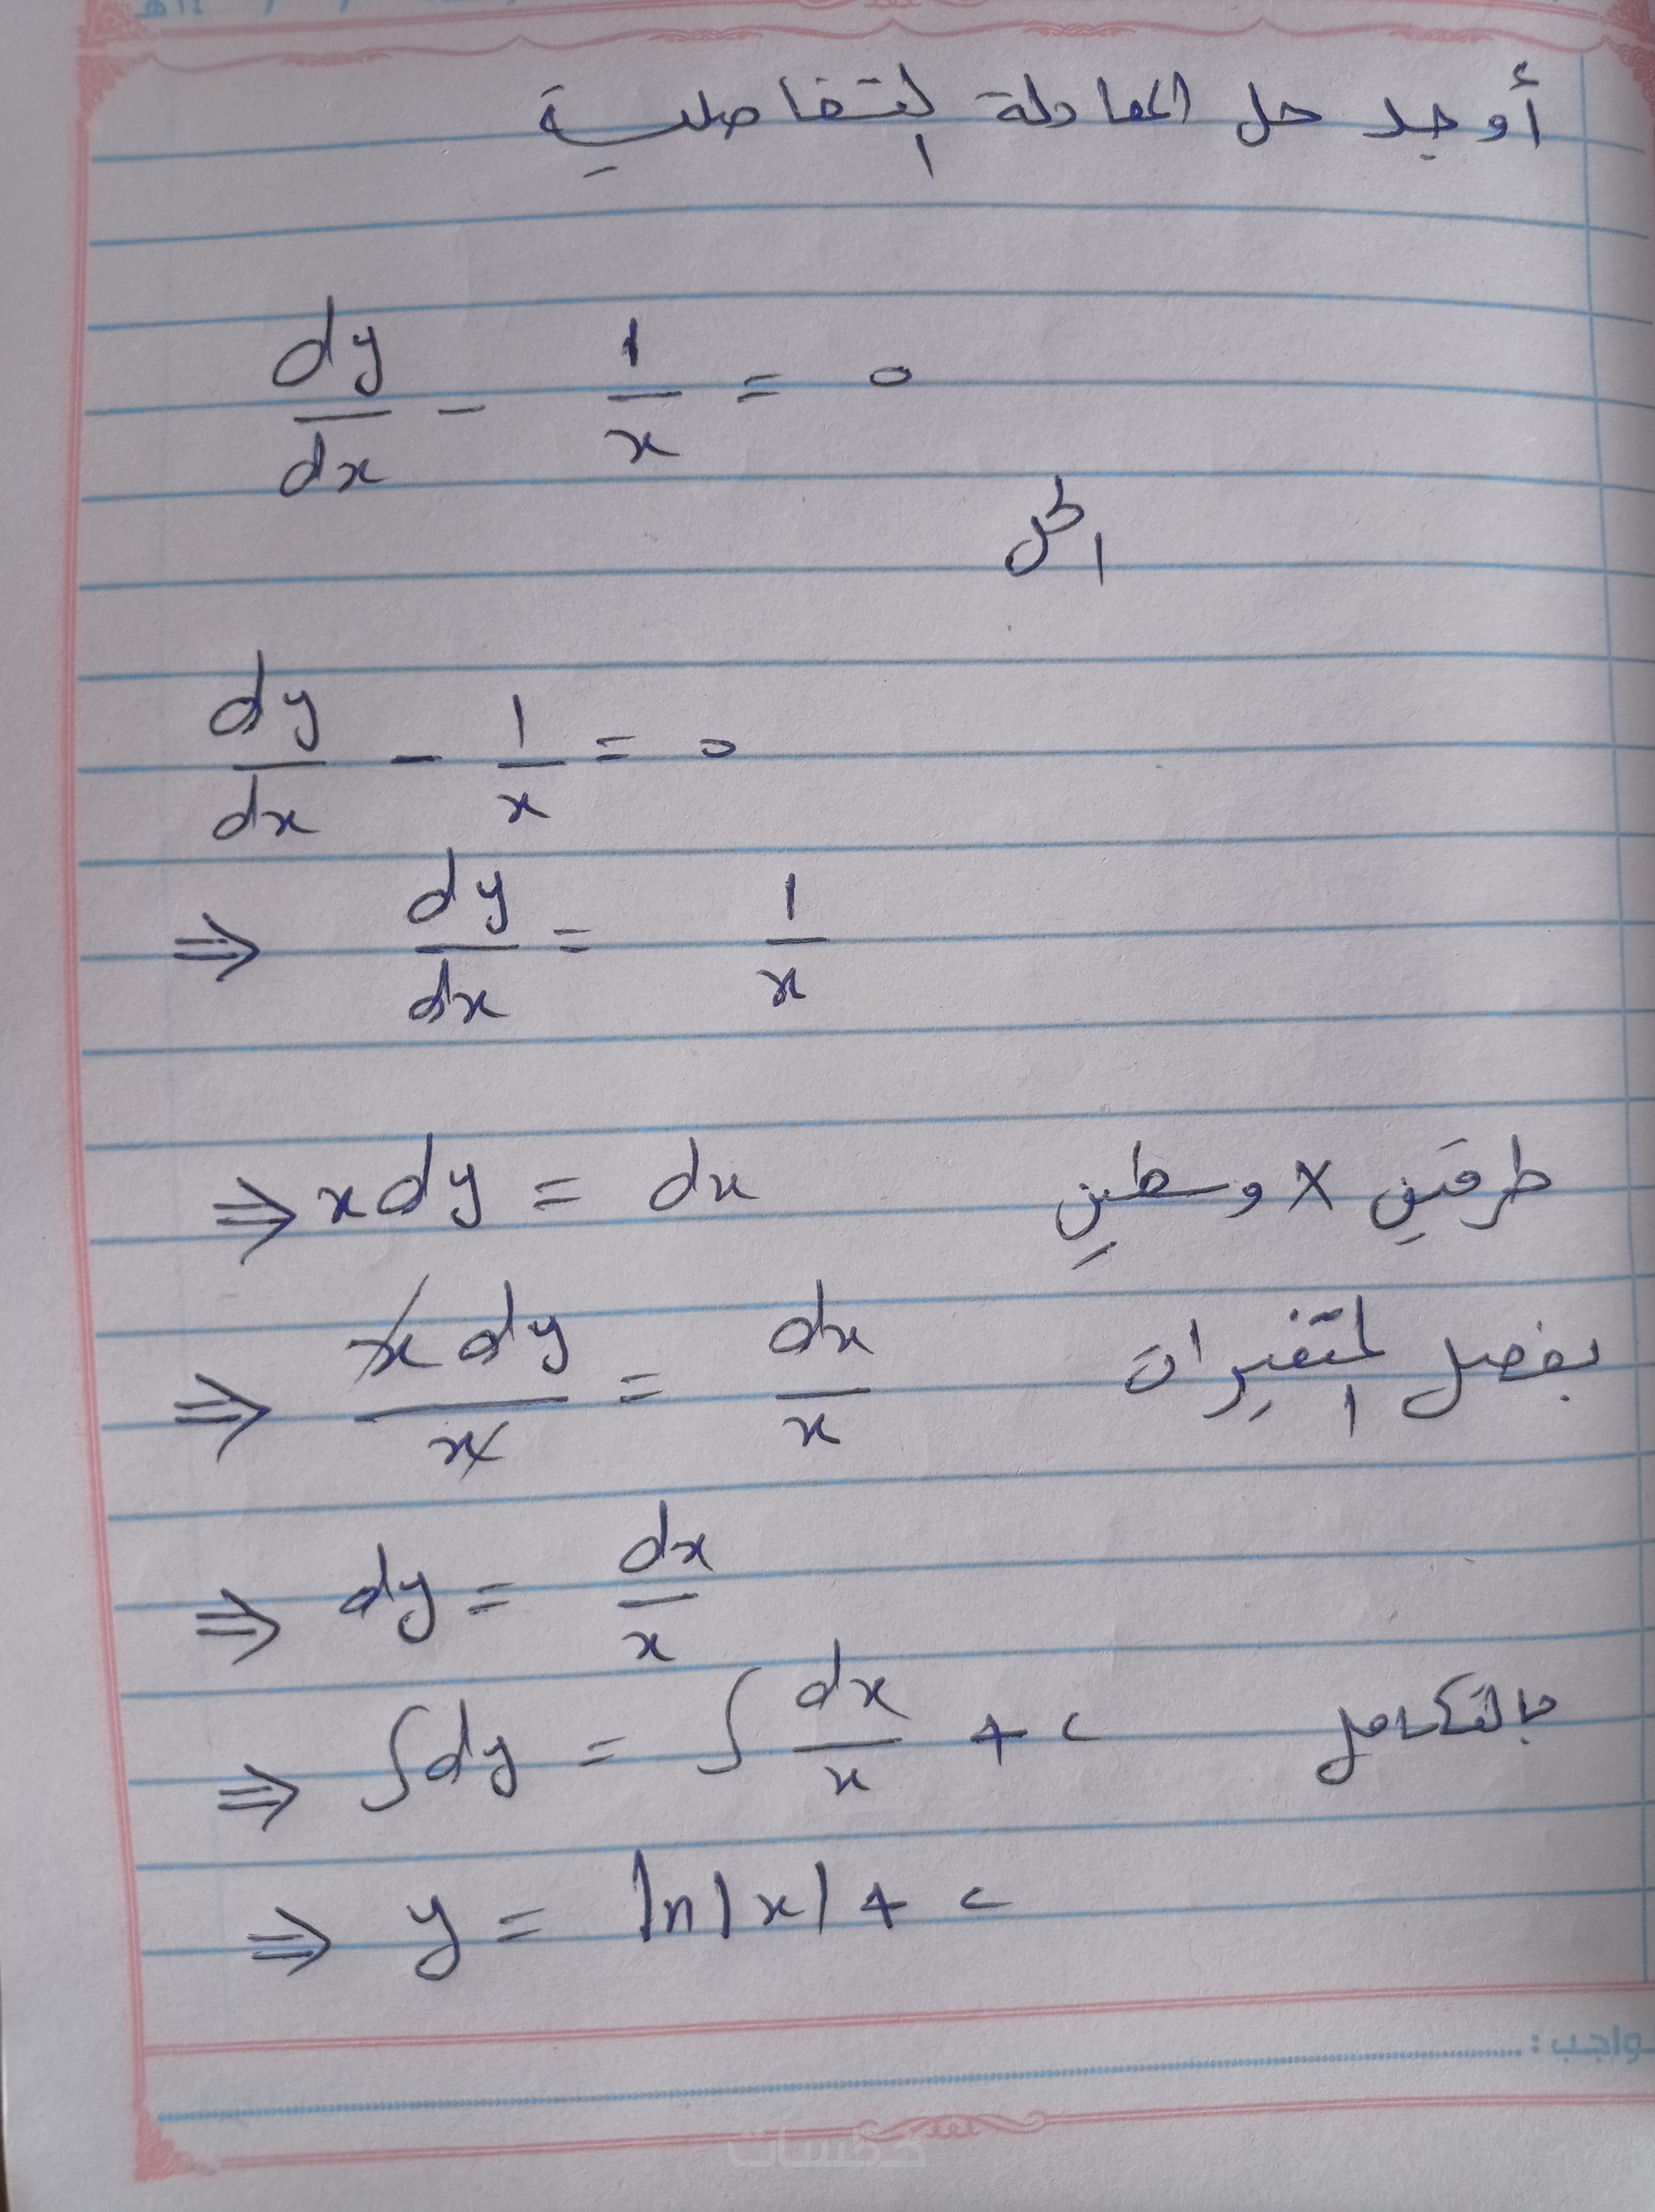 أوجد حل المعادلة التفاضلية
dy/dx - 1/x = 0
الحل
dy/dx - 1/x = 0
⇒ dy/dx = 1/x
⇒ x dy = dx طرفين × وسطين
⇒ x dy / x = dx/x بفصل المتغيرات
⇒ dy = dx/x
⇒ ∫dy = ∫ dx/x + c بالتكامل
⇒ y = ln|x| + c
واجب:
خمسات